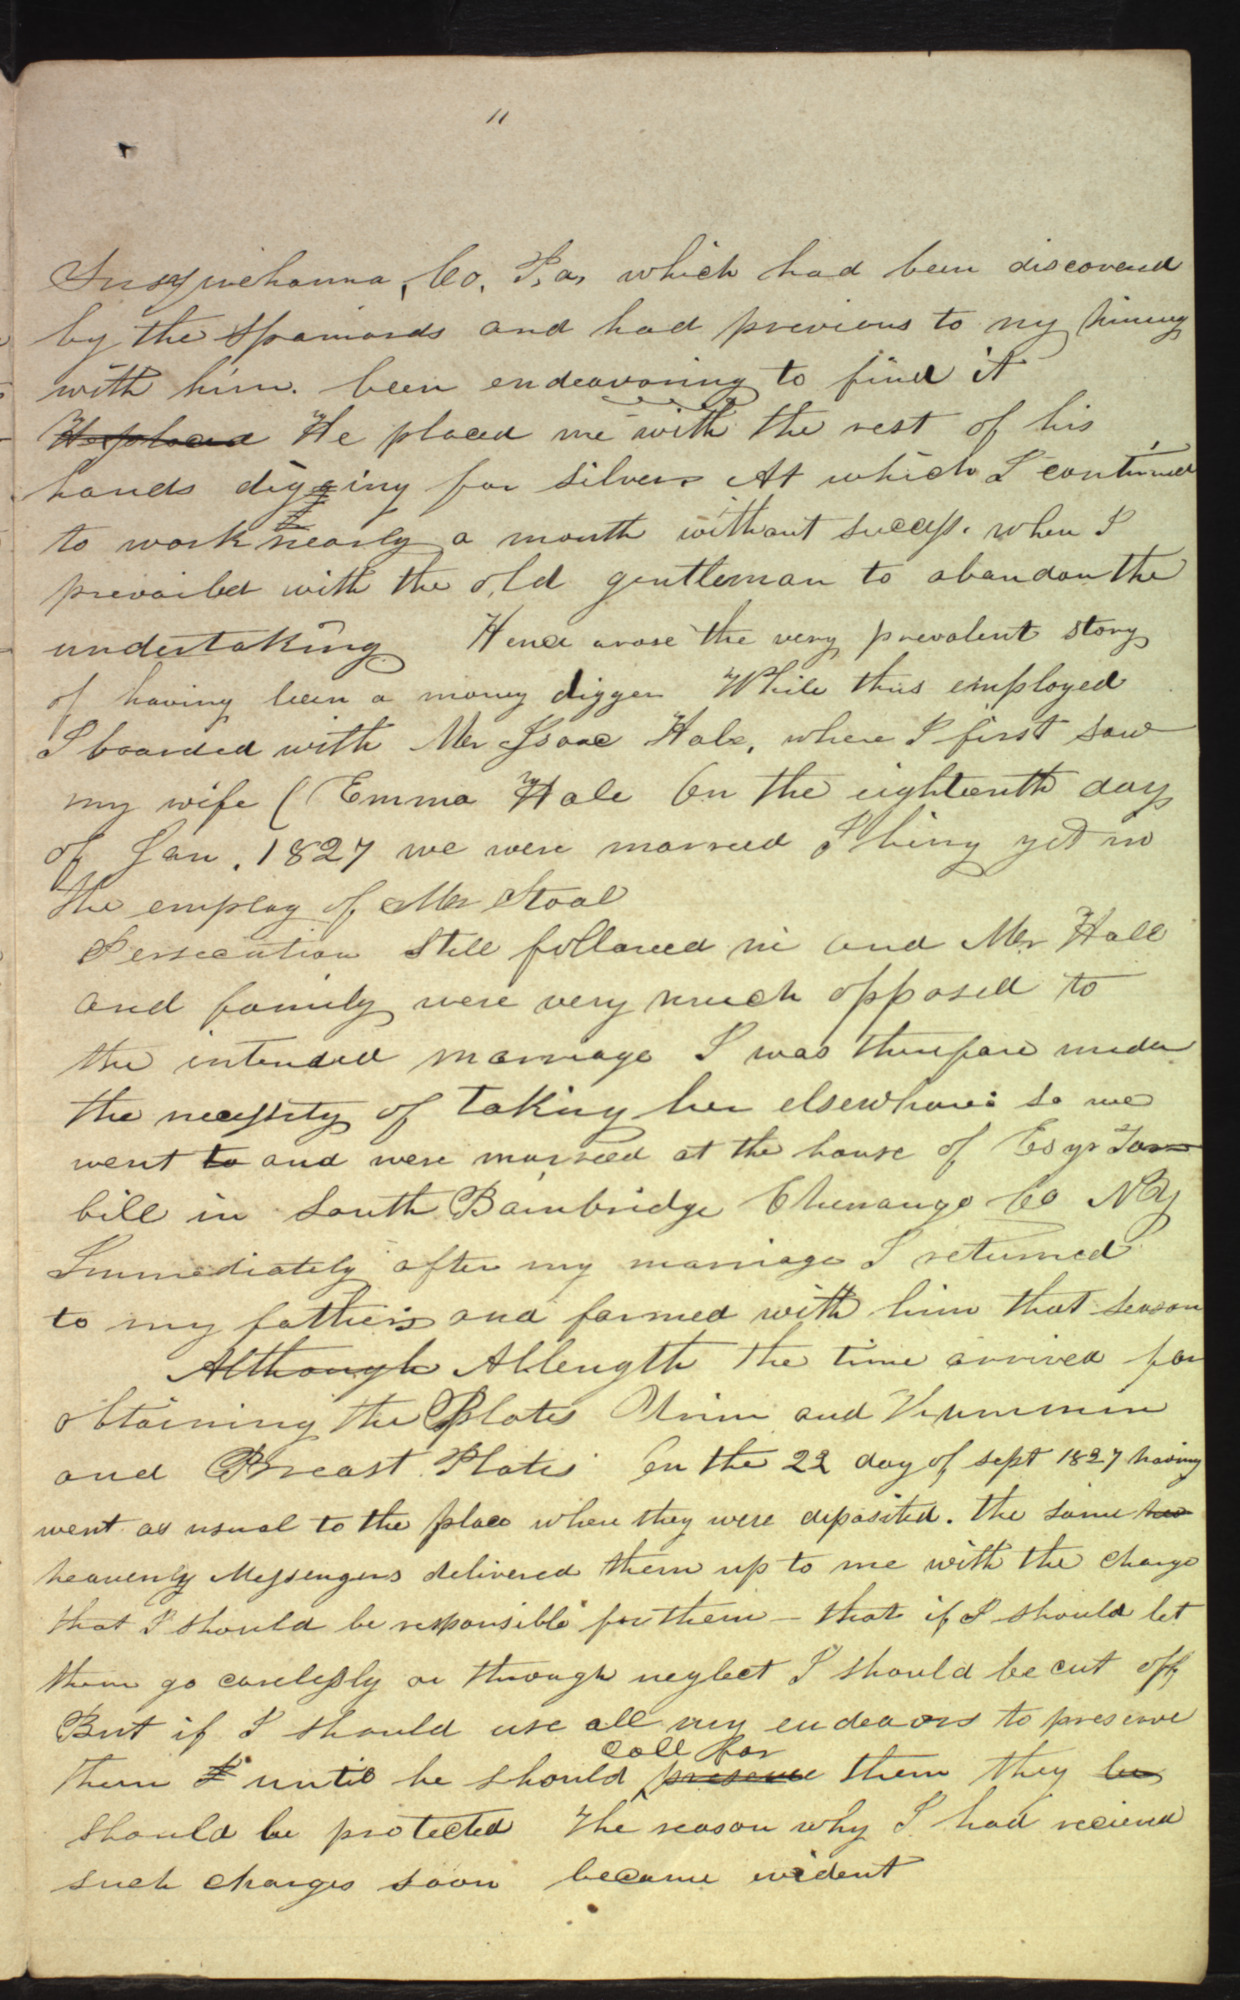 11
Susquehanna, Co, P,a, which had been discovered
by the Spaniards and had previous to my hireing
with him. been endeavoring to find it
He placed He placed me with the rest of his
hands digging for silver. At which I continued
to work nearly a month without success. when I
prevailed with the old gentleman to abandon the
undertaking Hence arose the very prevalent story
of having been a money digger While thus employed
I boarded with Mr Isaac Hale, where I first saw
my wife (Emma Hale On the eighteenth day
of Jan, 1827 we were married I being yet in
the employ of Mr Stoal
Persecution still followed me and Mr Hale
and family were very much opposed to
the intended marriage I was therefore under
the necessity of taking her elsewhere: so we
went to and were married at the house of Esqr Tar
bill in South Bainbridge Chenango Co NY
Immediately after my marriage I returned
to my fathers and farmed with him that season
Although Atlength the time arrived for
obtaining the Plates Urim and Thummim
and Breast Plate On the 22 day of sept 1827 having
went as usual to the place where they were deposited. the same
heavenly Messengers delivered them up to me with the charge
that I should be responsible for them — that if I should let
them go carelessly or through neglect I should be cut off
But if I should use all my endeavors to preserve
call for
them I until he should preserve them they be
should be protected The reason why I had recieved
such charges soon became evident